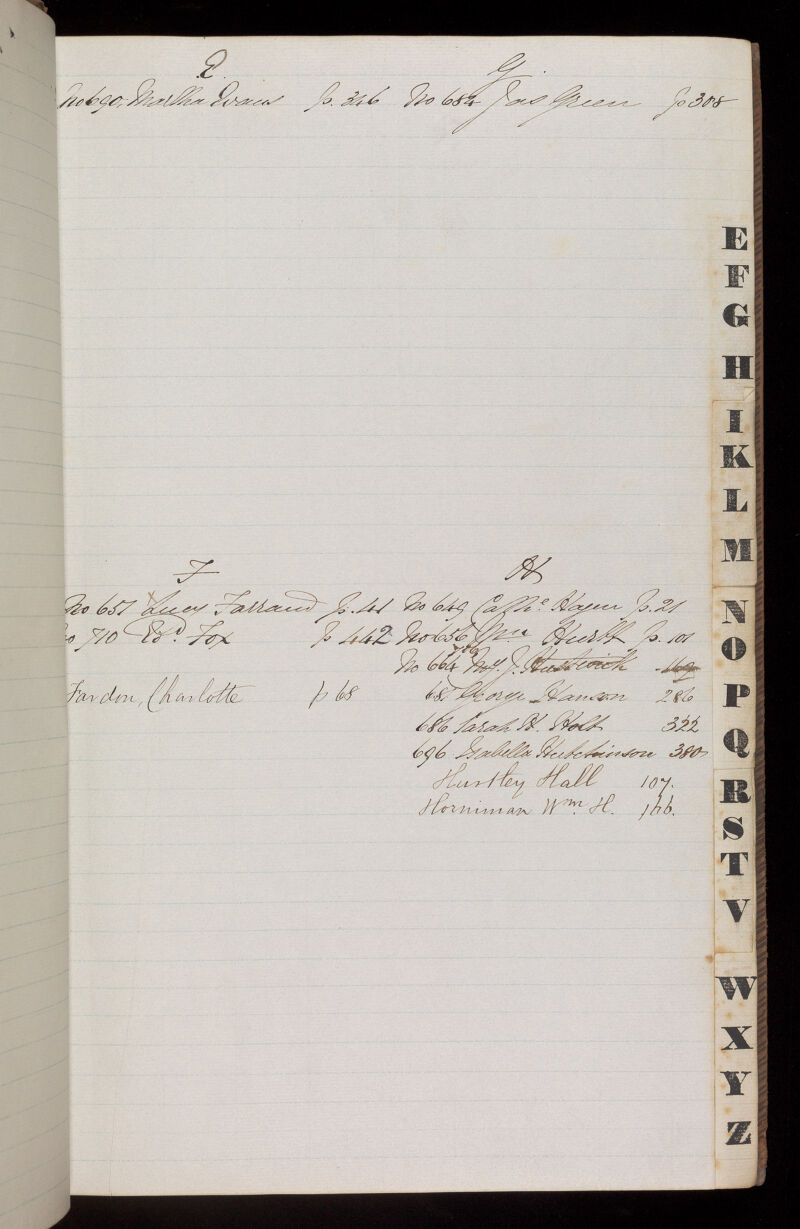 E
No 690. Martha Evans p. 346
G
No 684 Jas Green p 308
F
No 657 Lucy Farrand p. 41
No 710 Edd. Fox p 442
Fardon, Charlotte p 68
H
No 649 Cathe. Hagen p. 21
No 656 Wm Hurst p. 101
No 664 J.
George Hanson 286
686 Sarah H. Holt 322
696 Isabella Hutchinson 380
Huntley Hall 107.
Horniman Wm. H. 166.
E
F
G
H
I
K
L
M
N
O
P
Q
R
S
T
V
W
X
Y
Z